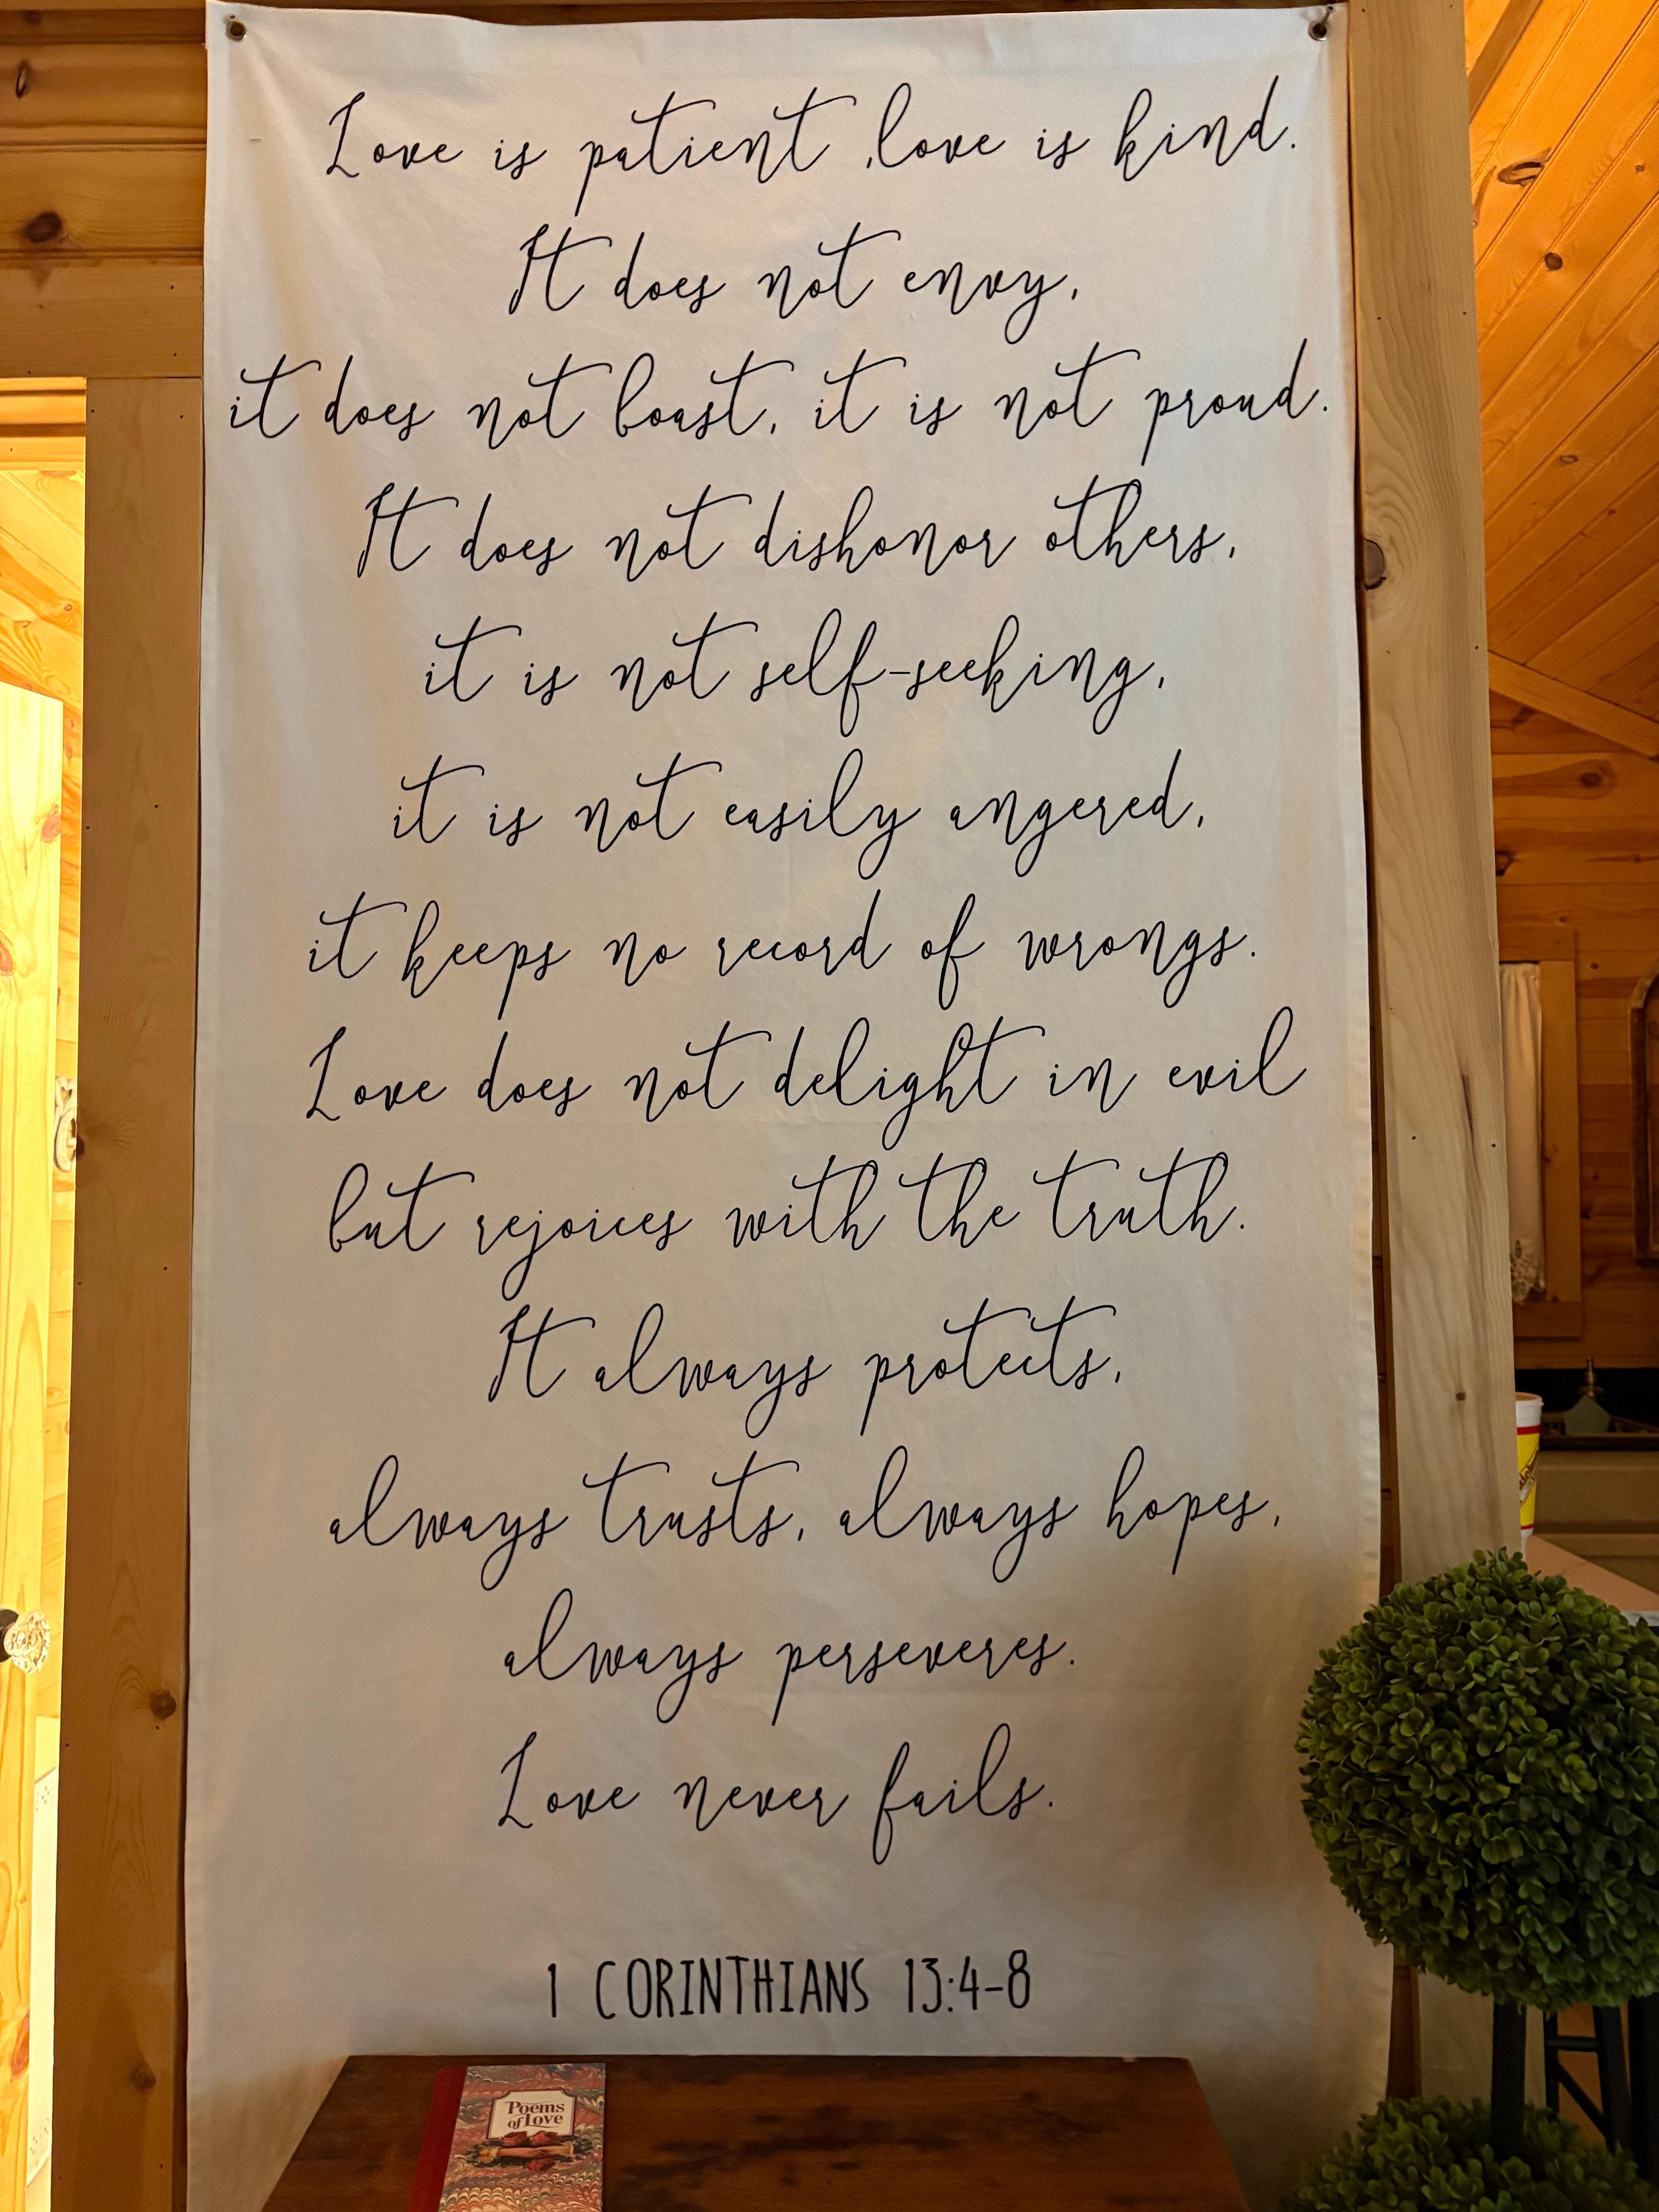 Love is patient ,love is kind.
It does not envy,
it does not boast, it is not proud.
It does not dishonor others,
it is not self-seeking,
it is not easily angered,
it keeps no record of wrongs.
Love does not delight in evil
but rejoices with the truth.
It always protects,
always trusts, always hopes,
always perseveres.
Love never fails.
1 CORINTHIANS 13:4-8
Poems
of Love